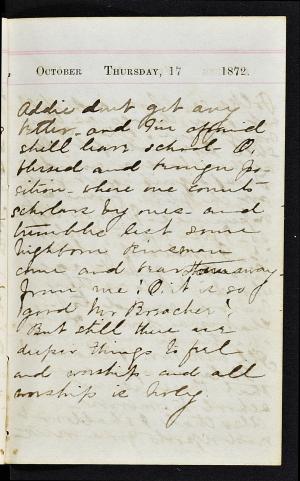 October Thursday, 17 1872.
Addie dont get any
better - and I'm affraid
shell leave school O,
blessed and benign po-
sition - where one counts
scholars by ones - and
trembles lest some
highborn kinsman
come and bear them away
from me! O it is so
good Mr
But still there are
deeper things to feel
and worship - and all
worship is holy.